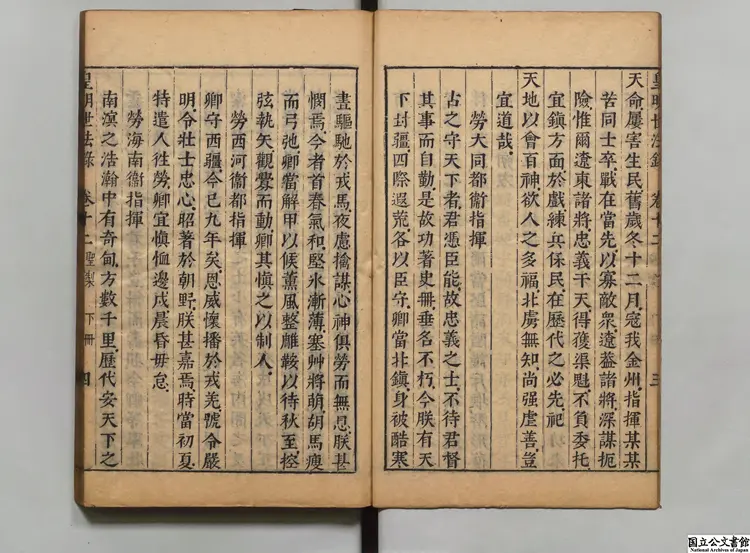 天命屢害生民舊歲冬十二月寇我金州指揮某某
苦同士卒戰在當先以寡敵衆遼葢諸將深謀扼
險惟爾遼東諸將忠義干天得獲渠魁不負委托
宜鎮方面於戲練兵保民在歷代之必先祀
天地以會百神欲人之多福北虜無知尚强虐善豈
宜道哉
勞大同都衞指揮
古之守天下者君憑臣能故忠義之士不待君督
其事而自勤是故功著史冊垂名不朽今朕有天
下封疆四際遐荒各以臣守卿當北鎮身被酷寒
皇明世法錄 卷十二 三
晝驅馳於戎馬夜慮擒謀心神俱勞而無息朕甚
憫焉今者首春氣和堅氷漸薄塞艸將萌胡馬瘦
而弓弛卿當解甲以候薰風整雕鞍以待秋至控
弦執矢觀釁而動卿其愼之以制人
勞西河衞都指揮
卿守西疆今已九年矣恩威懷播於戎羌號令嚴
明令壯士忠心昭著於朝野朕甚嘉焉時當初夏
特遣人徃勞卿宜愼恤邊戍晨昏毋怠
勞海南衞指揮
南溟之浩瀚中有奇甸方數千里歷代安天下之
皇明世法錄 卷十二 聖製 下冊 四
国立公文書館
National Archives of Japan